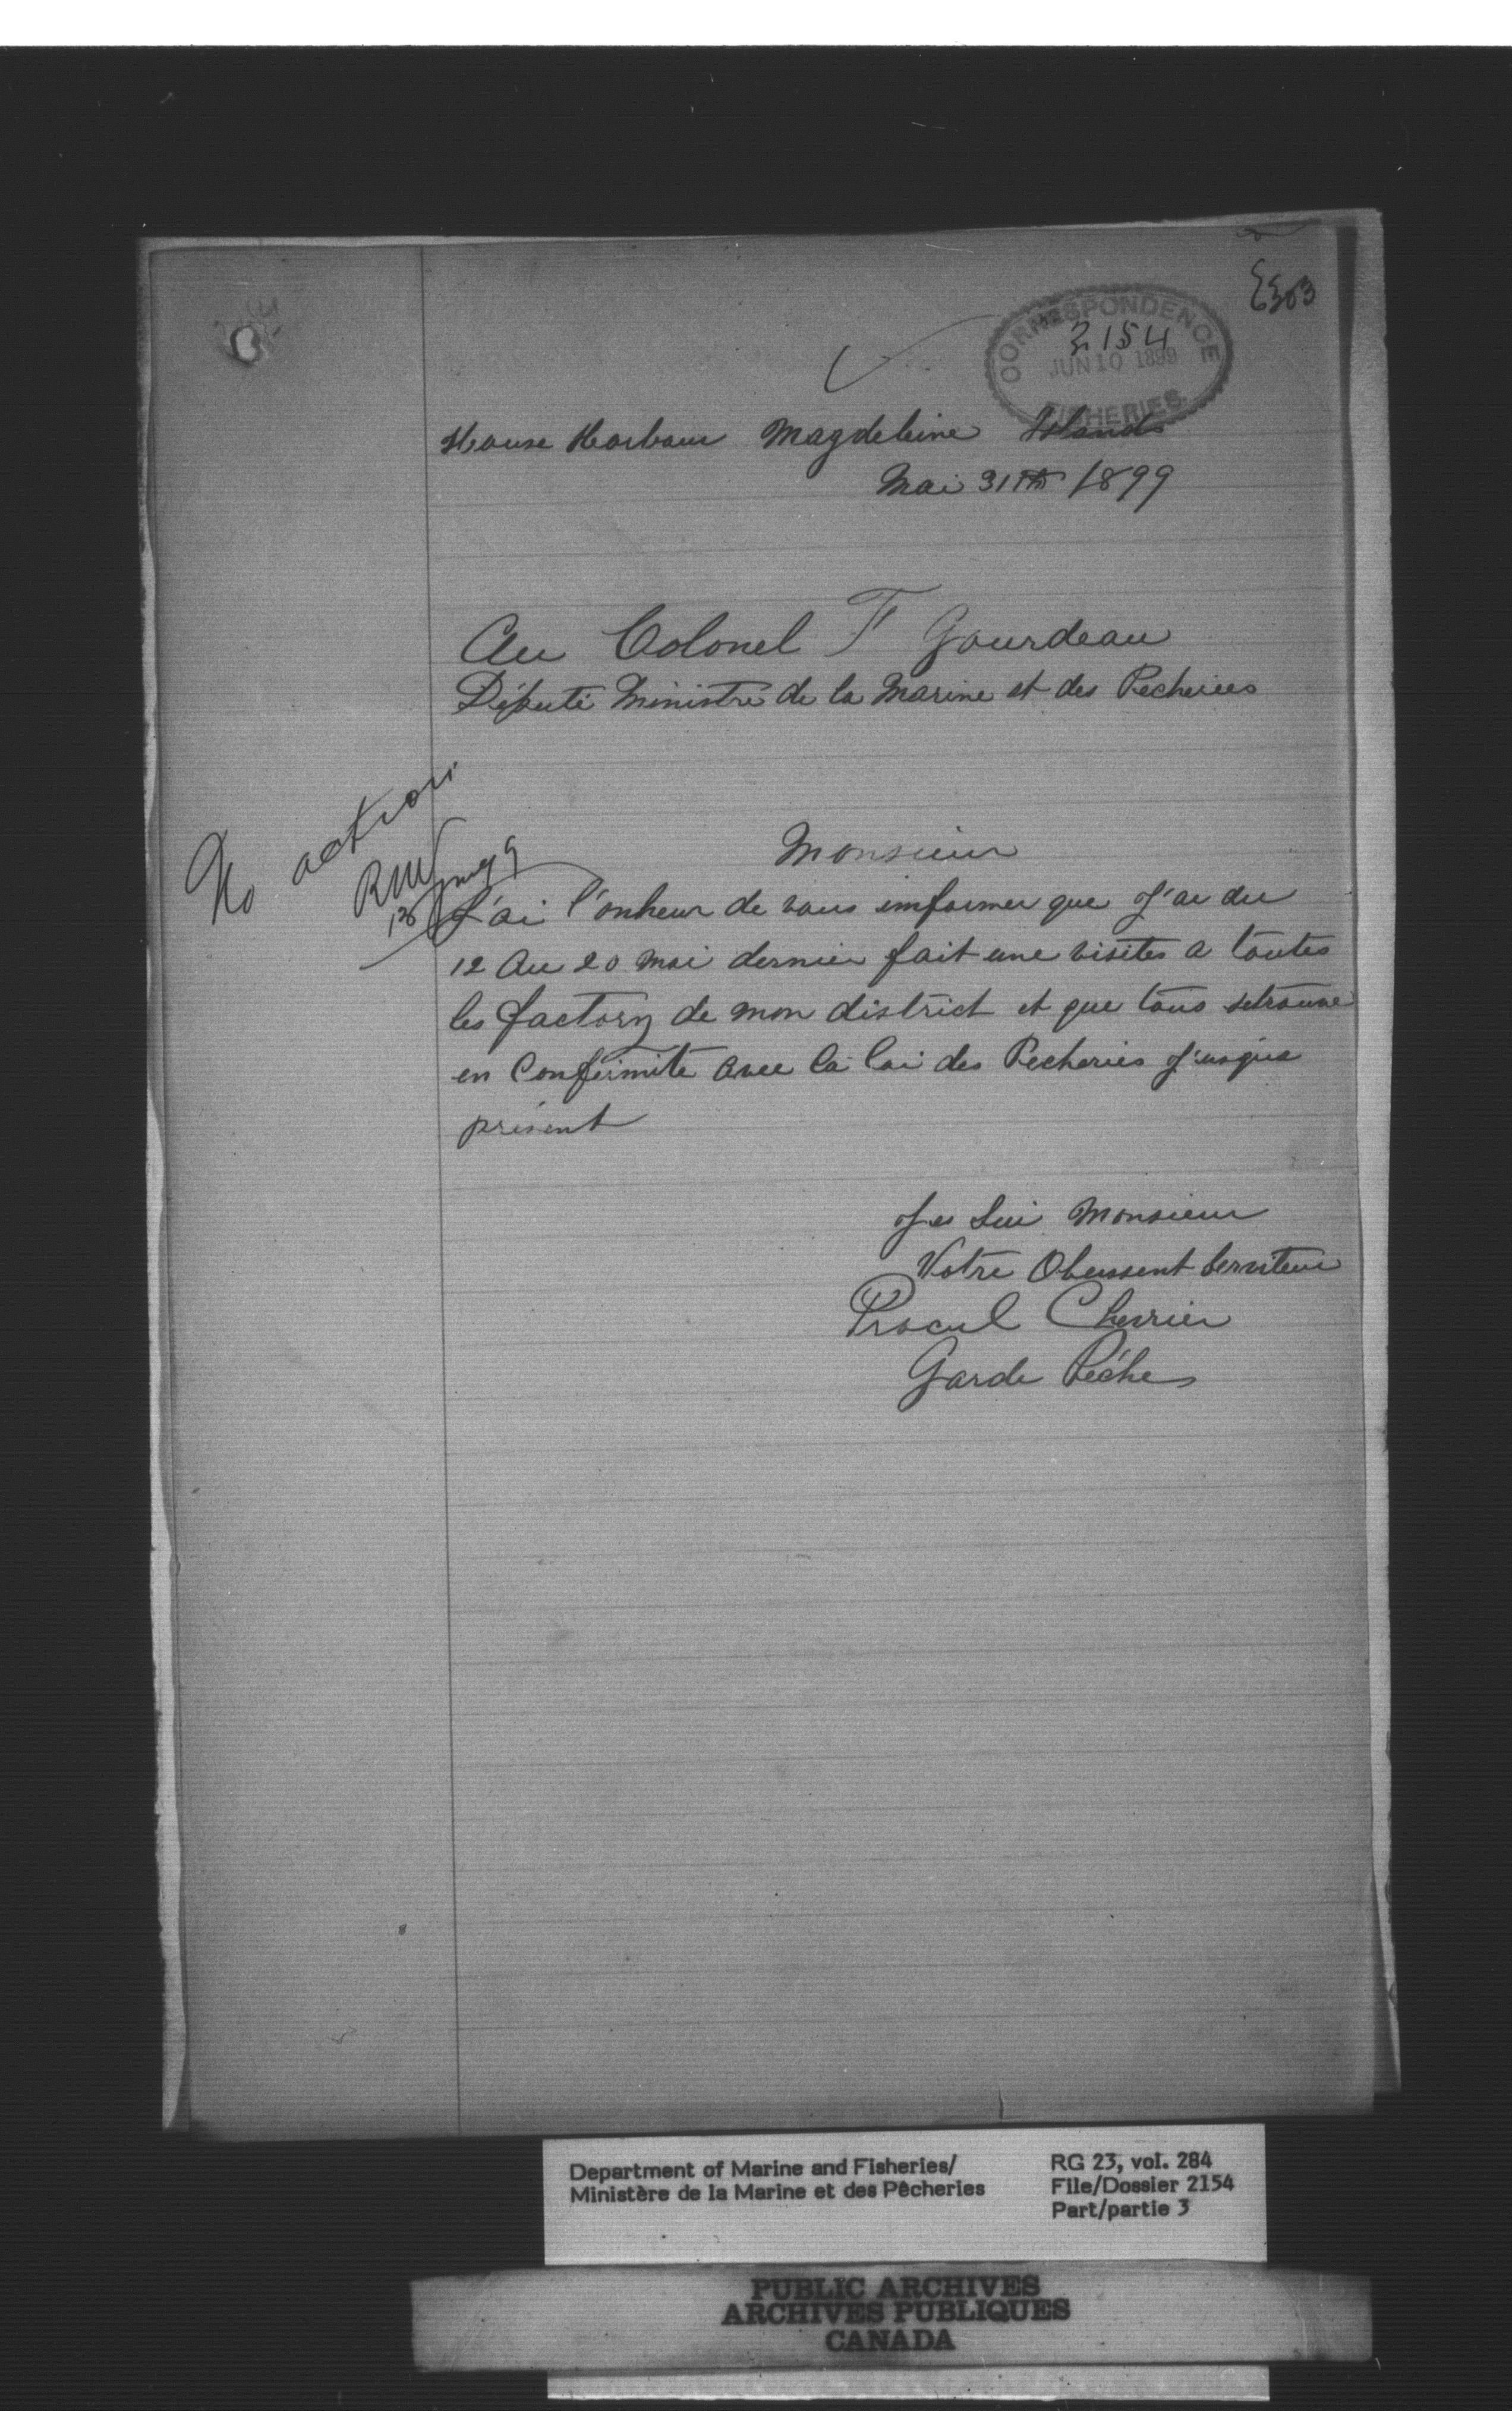 CORRESPONDENCE
2154
JUN 10 1899
FISHERIES.
House Harbour Magdeleine Islands
Mai 31th 1899
Au Colonel F Gourdeau
Députe Ministre de la Marine et des Pecheries
No action
RNV
Monsieur
J'ai l'onheur de vous imformer que J'ai du
12 Au 20 Mai dernier fait une visites a toutes
les factory de mon district et que tous setrouve
en Conformite avec la loi des Pecheries J'usqua
présent
Je Sui Monsieur
Votre Obeissent Serviteur
Procul Chevrier
Garde Pêche
Department of Marine and Fisheries/
Ministère de la Marine et des Pêcheries
RG 23, vol. 284
File/Dossier 2154
Part/partie 3
PUBLIC ARCHIVES
ARCHIVES PUBLIQUES
CANADA